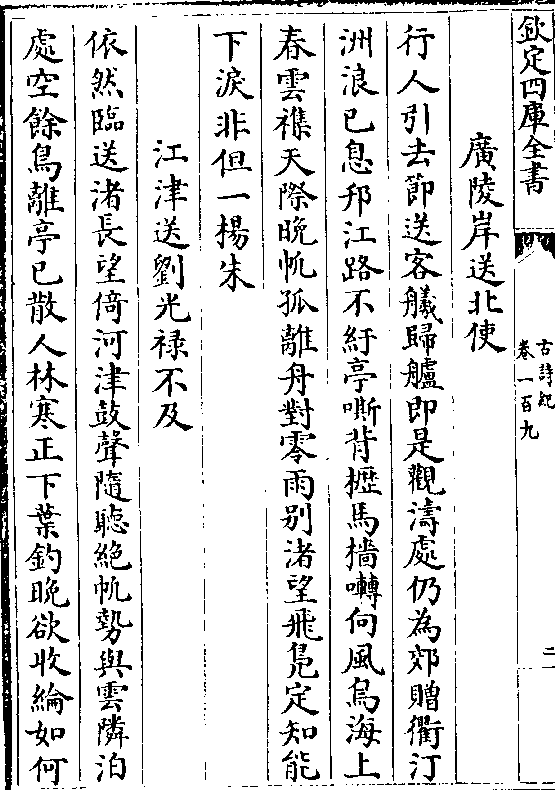 欽定四庫全書
古詩紀
卷一百九
二
廣陵岸送北使
行人引去節送客艤歸艫即是觀濤處仍為郊贈衢汀
洲浪已息邗江路不紆亭嘶背櫪馬檣囀向風烏海上
春雲襍天際晩帆孤離舟對零雨别渚望飛鳬定知能
下淚非但一楊朱
江津送劉光禄不及
依然臨送渚長望倚河津鼓聲隨聽絶帆勢與雲隣泊
處空餘鳥離亭已散人林寒正下葉釣晩欲收綸如何